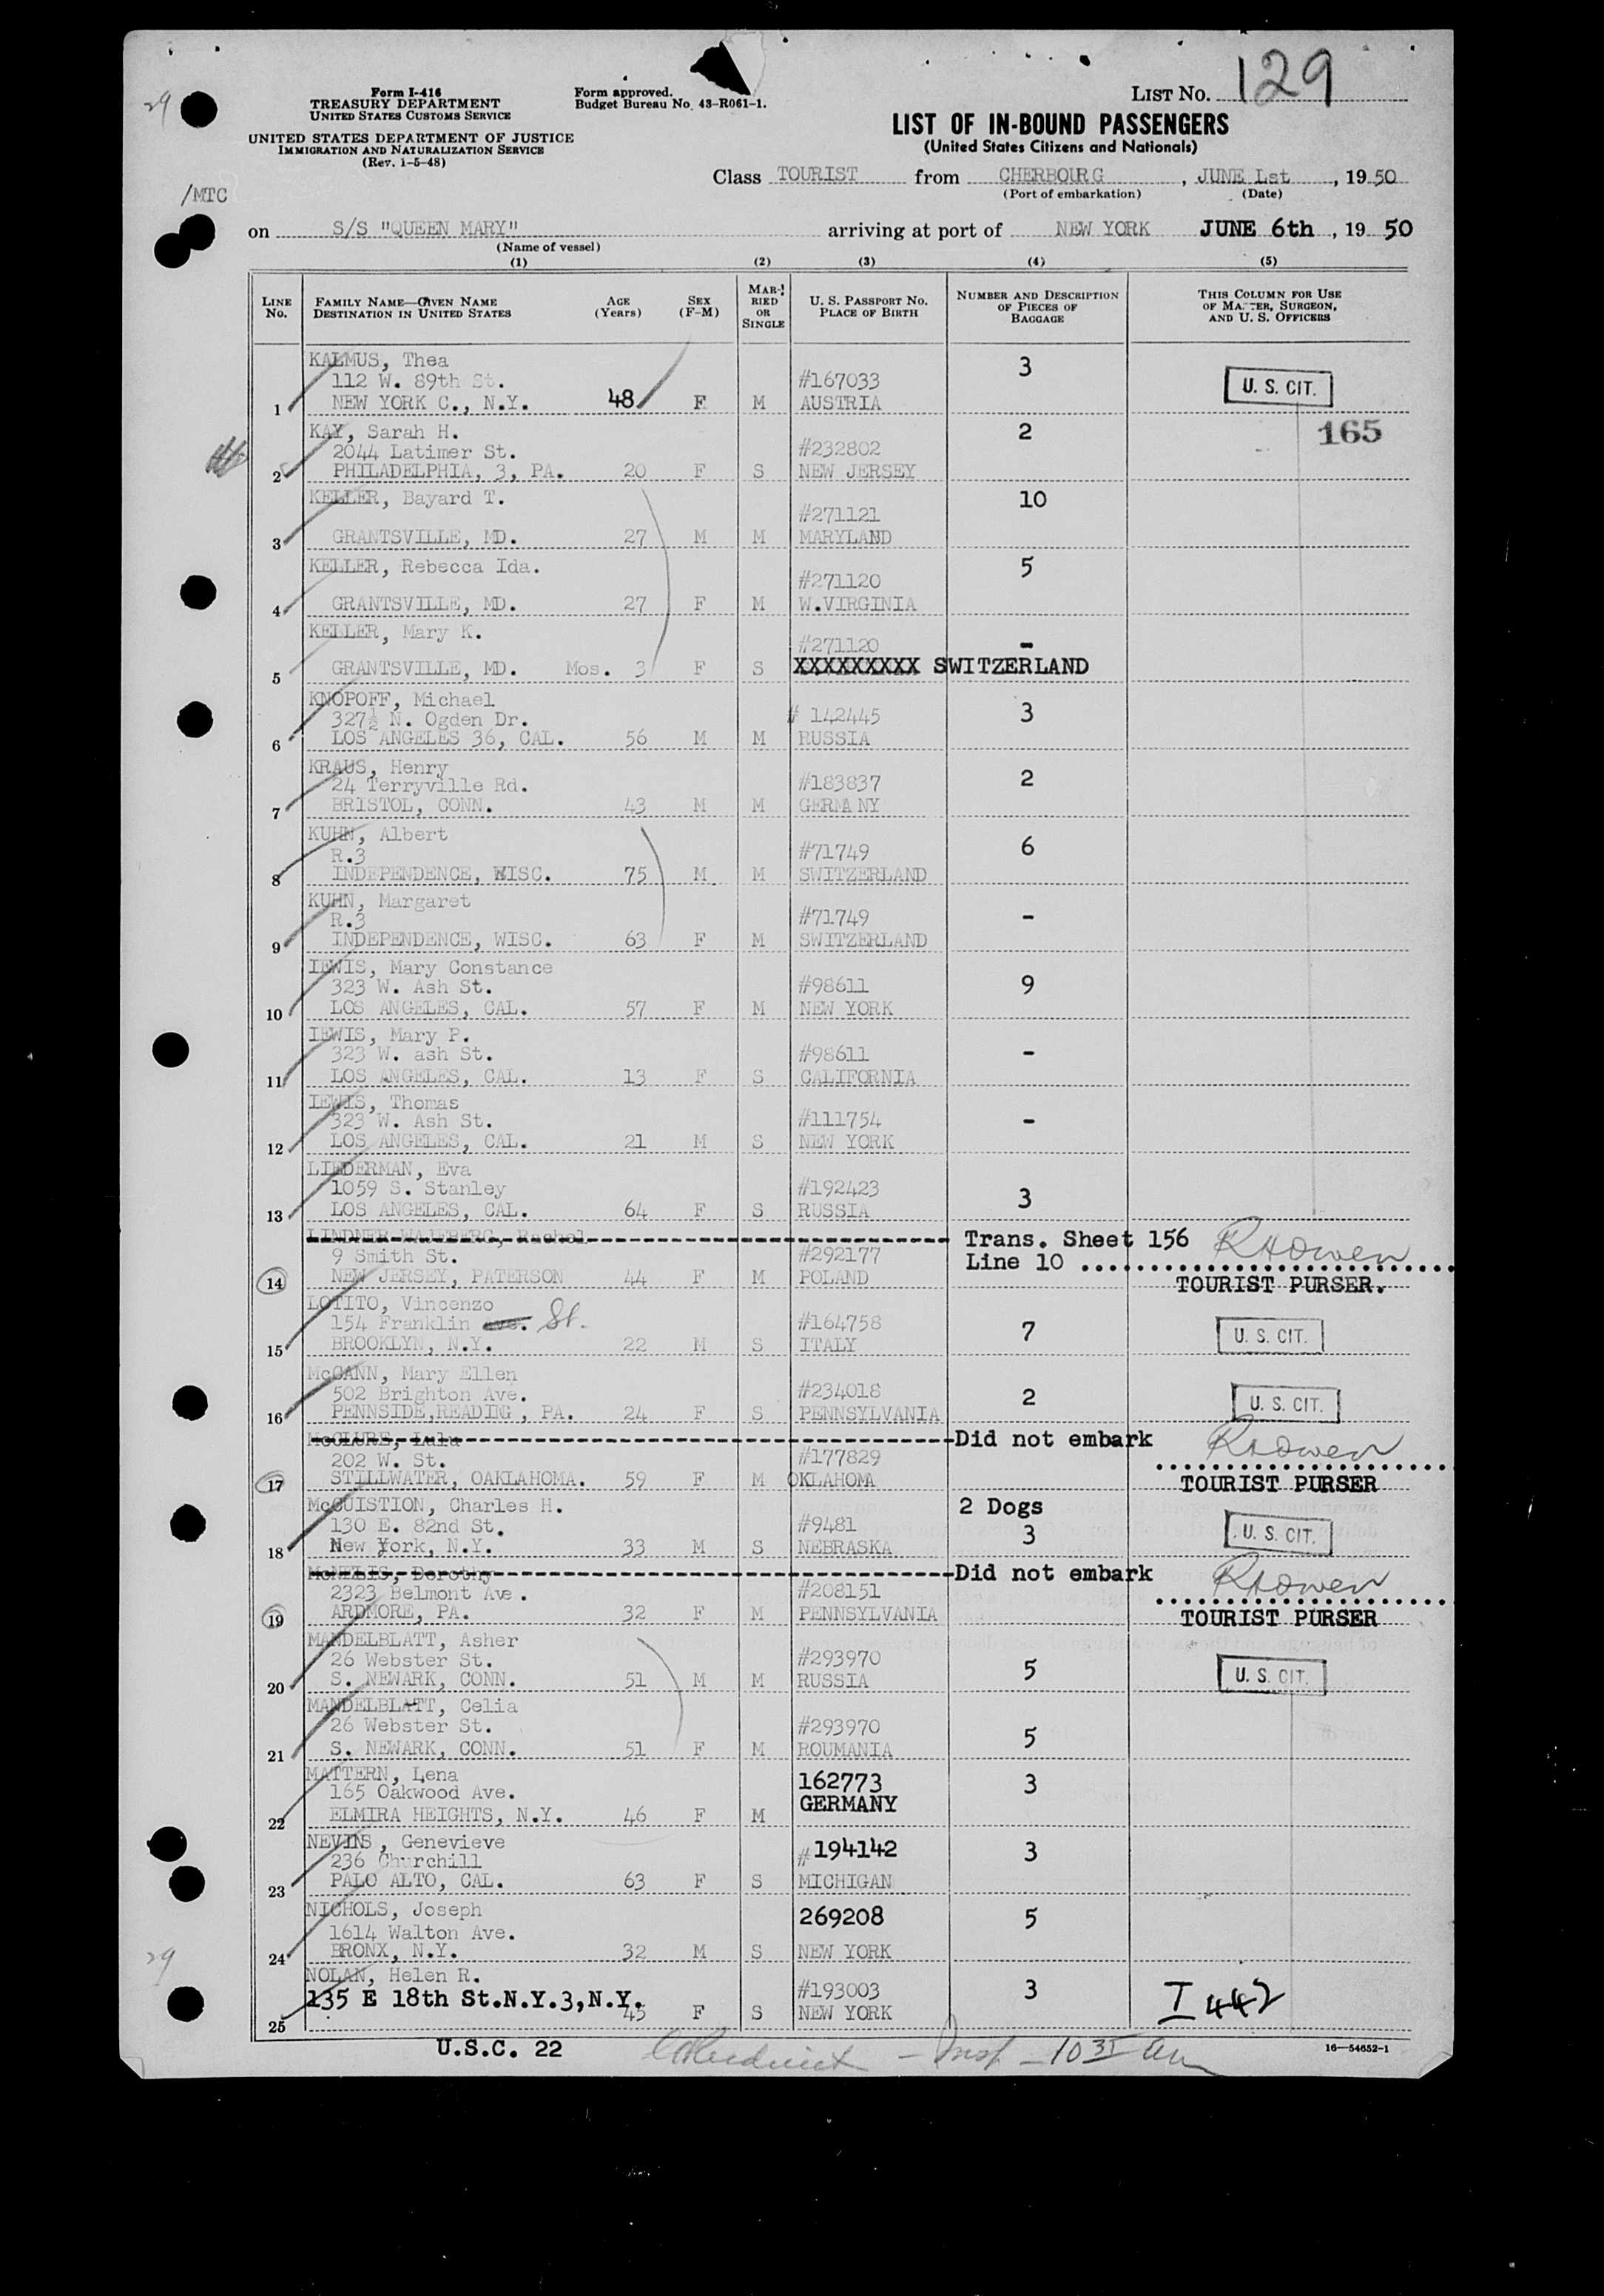 29
Form I-416
TREASURY DEPARTMENT
UNITED STATES CUSTOMS SERVICE
UNITED STATES DEPARTMENT OF JUSTICE
IMMIGRATION AND NATURALIZATION SERVICE
(Rev. 1-5-48)
Form approved.
Budget Bureau No. 43-R061-1.
LIST No. 129
LIST OF IN-BOUND PASSENGERS
(United States Citizens and Nationals)
/MTC
Class TOURIST from CHERBOURG, JUNE 1st, 1950
(Port of embarkation) (Date)
on S/S "QUEEN MARY" arriving at port of NEW YORK JUNE 6th, 1950
(Name of vessel)
(1) (2) (3) (4) (5)
LINE No. FAMILY NAME—GIVEN NAME DESTINATION IN UNITED STATES AGE (Years) SEX (F-M) MARRIED OR SINGLE U. S. PASSPORT No. PLACE OF BIRTH NUMBER AND DESCRIPTION OF PIECES OF BAGGAGE THIS COLUMN FOR USE OF MASTER, SURGEON, AND U. S. OFFICERS
KALMUS, Thea 3
112 W. 89th St. #167033 U. S. CIT.
1 NEW YORK C., N.Y. 48 F M AUSTRIA
KAY, Sarah H. 2 165
2044 Latimer St. #232802
2 PHILADELPHIA, 3, PA. 20 F S NEW JERSEY
KELLER, Bayard T. 10
#271121
3 GRANTSVILLE, MD. 27 M M MARYLAND
KELLER, Rebecca Ida. 5
#271120
4 GRANTSVILLE, MD. 27 F M W.VIRGINIA
KELLER, Mary K.
#271120 -
5 GRANTSVILLE, MD. Mos. 3 F S XXXXXXXXX SWITZERLAND
KNOPOFF, Michael
327½ N. Ogden Dr. # 142445 3
6 LOS ANGELES 36, CAL. 56 M M RUSSIA
KRAUS, Henry
24 Terryville Rd. #183837 2
7 BRISTOL, CONN. 43 M M GERMANY
KUHN, Albert
R.3 #71749 6
8 INDEPENDENCE, WISC. 75 M M SWITZERLAND
KUHN, Margaret
R.3 #71749 -
9 INDEPENDENCE, WISC. 63 F M SWITZERLAND
LEWIS, Mary Constance
323 W. Ash St. #98611 9
10 LOS ANGELES, CAL. 57 F M NEW YORK
LEWIS, Mary P.
323 W. ash St. #98611 -
11 LOS ANGELES, CAL. 13 F S CALIFORNIA
LEWIS, Thomas
323 W. Ash St. #111754 -
12 LOS ANGELES, CAL. 21 M S NEW YORK
LIEDERMAN, Eva
1059 S. Stanley #192423 3
13 LOS ANGELES, CAL. 64 F S RUSSIA
LINDNER WAJEBERG, Rachel Trans. Sheet 156 RHOwen
9 Smith St. #292177 Line 10
14 NEW JERSEY, PATERSON 44 F M POLAND TOURIST PURSER.
LOTITO, Vincenzo
154 Franklin Ave. St. #164758 7 U. S. CIT.
15 BROOKLYN, N.Y. 22 M S ITALY
McCANN, Mary Ellen
502 Brighton Ave. #234018 2 U. S. CIT.
16 PENNSIDE,READING, PA. 24 F S PENNSYLVANIA
McCLURE, Lulu Did not embark RHOwen
202 W. St. #177829
17 STILLWATER, OAKLAHOMA. 59 F M OKLAHOMA TOURIST PURSER
McQUISTION, Charles H. 2 Dogs
130 E. 82nd St. #9481 3 U. S. CIT.
18 New York, N.Y. 33 M S NEBRASKA
McNELIS, Dorothy Did not embark RHOwen
2323 Belmont Ave. #208151
19 ARDMORE, PA. 32 F M PENNSYLVANIA TOURIST PURSER
MANDELBLATT, Asher
26 Webster St. #293970 5 U. S. CIT.
20 S. NEWARK, CONN. 51 M M RUSSIA
MANDELBLATT, Celia
26 Webster St. #293970 5
21 S. NEWARK, CONN. 51 F M ROUMANIA
MATTERN, Lena 162773 3
165 Oakwood Ave. GERMANY
22 ELMIRA HEIGHTS, N.Y. 46 F M
NEVINS, Genevieve #194142 3
236 Churchill
23 PALO ALTO, CAL. 63 F S MICHIGAN
NICHOLS, Joseph 269208 5
1614 Walton Ave.
29
24 BRONX, N.Y. 32 M S NEW YORK
NOLAN, Helen R. #193003 3
135 E 18th St.N.Y.3,N.Y. I 442
25 45 F S NEW YORK
U.S.C. 22 - Insp - 10 35 am 16—54652-1